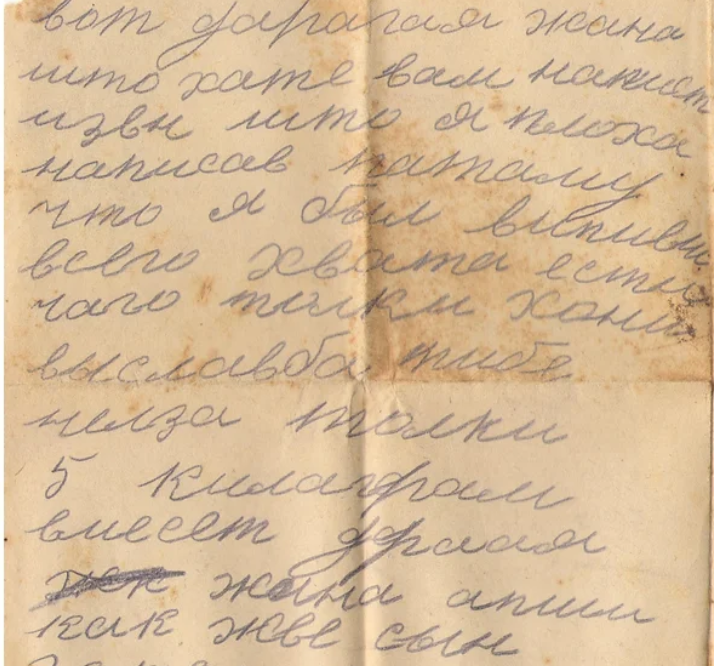 вот дарагая жана
што хате вам напиат
извн што я плоха
написав патаму
что я был випивши
всего хвата есть
чаго толки хочиш
выславба тибе
нелза толки
5 килаграм
вмесет драая
жана апиши
как жве сын